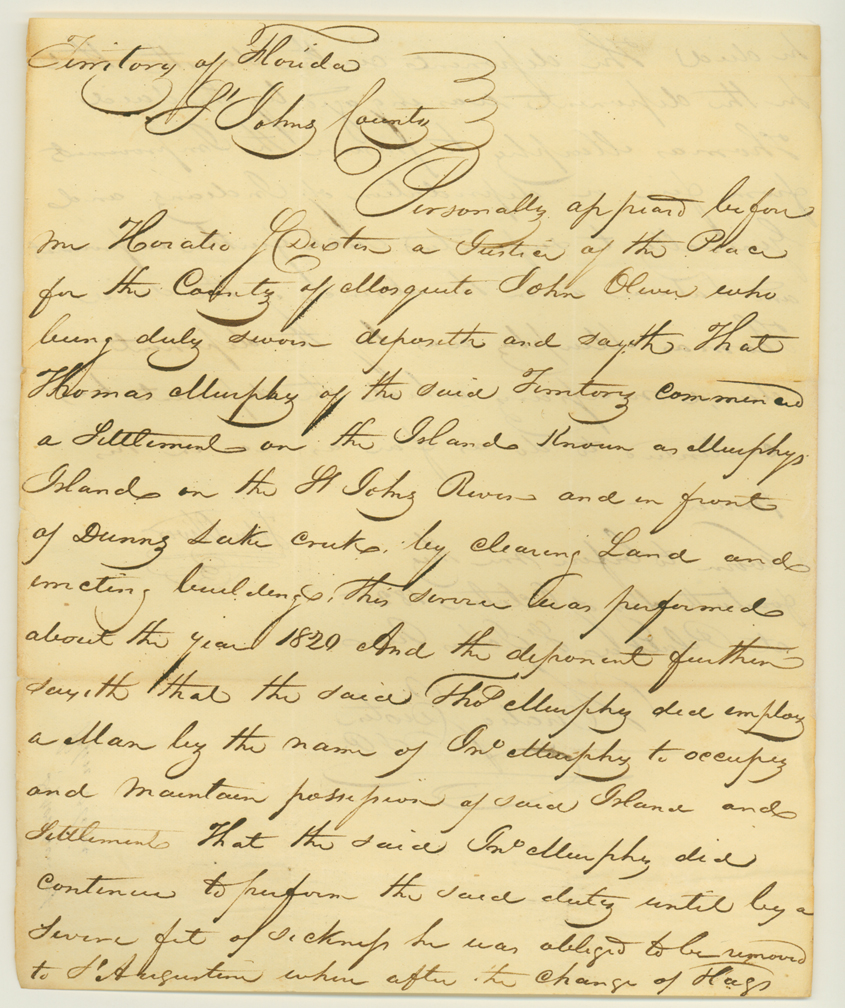 Territory of Florida
St Johns County
Personally appeard before
me Horatio S Dexter a Justice of the Peace
for the County of Mosquito John Oliver who
being duly sworn deposeth and sayth That
Thomas Murphy of the said Territory commenced
a Settlement on the Island Known as Murphys
Island on the St Johns River and in front
of Dunns Lake creek, by clearing Land and
errecting buildings, this service was performed
about the year 1820 And the deponent further
sayith that the said Thos Murphy did employ
a Man by the name of Jno Murphy to occupy
and maintain possession of said Island and
Settlement That the said Jno Murphy did
continue to perform the said duty until by a
severe fit of sickness he was obliged to be removed
to St Augustine where after the change of Flags